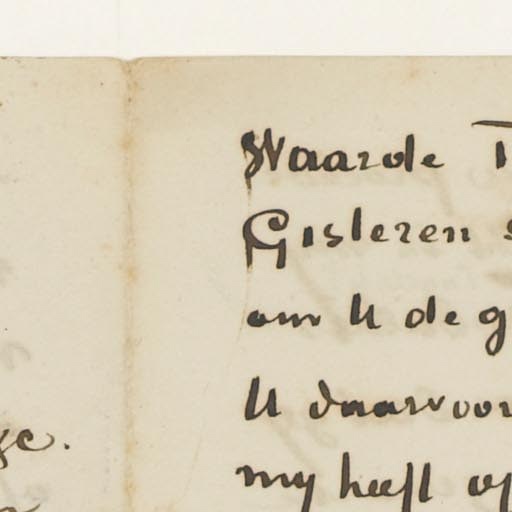 Waarde
Gisteren
om U de
U daarvoor
my heeft